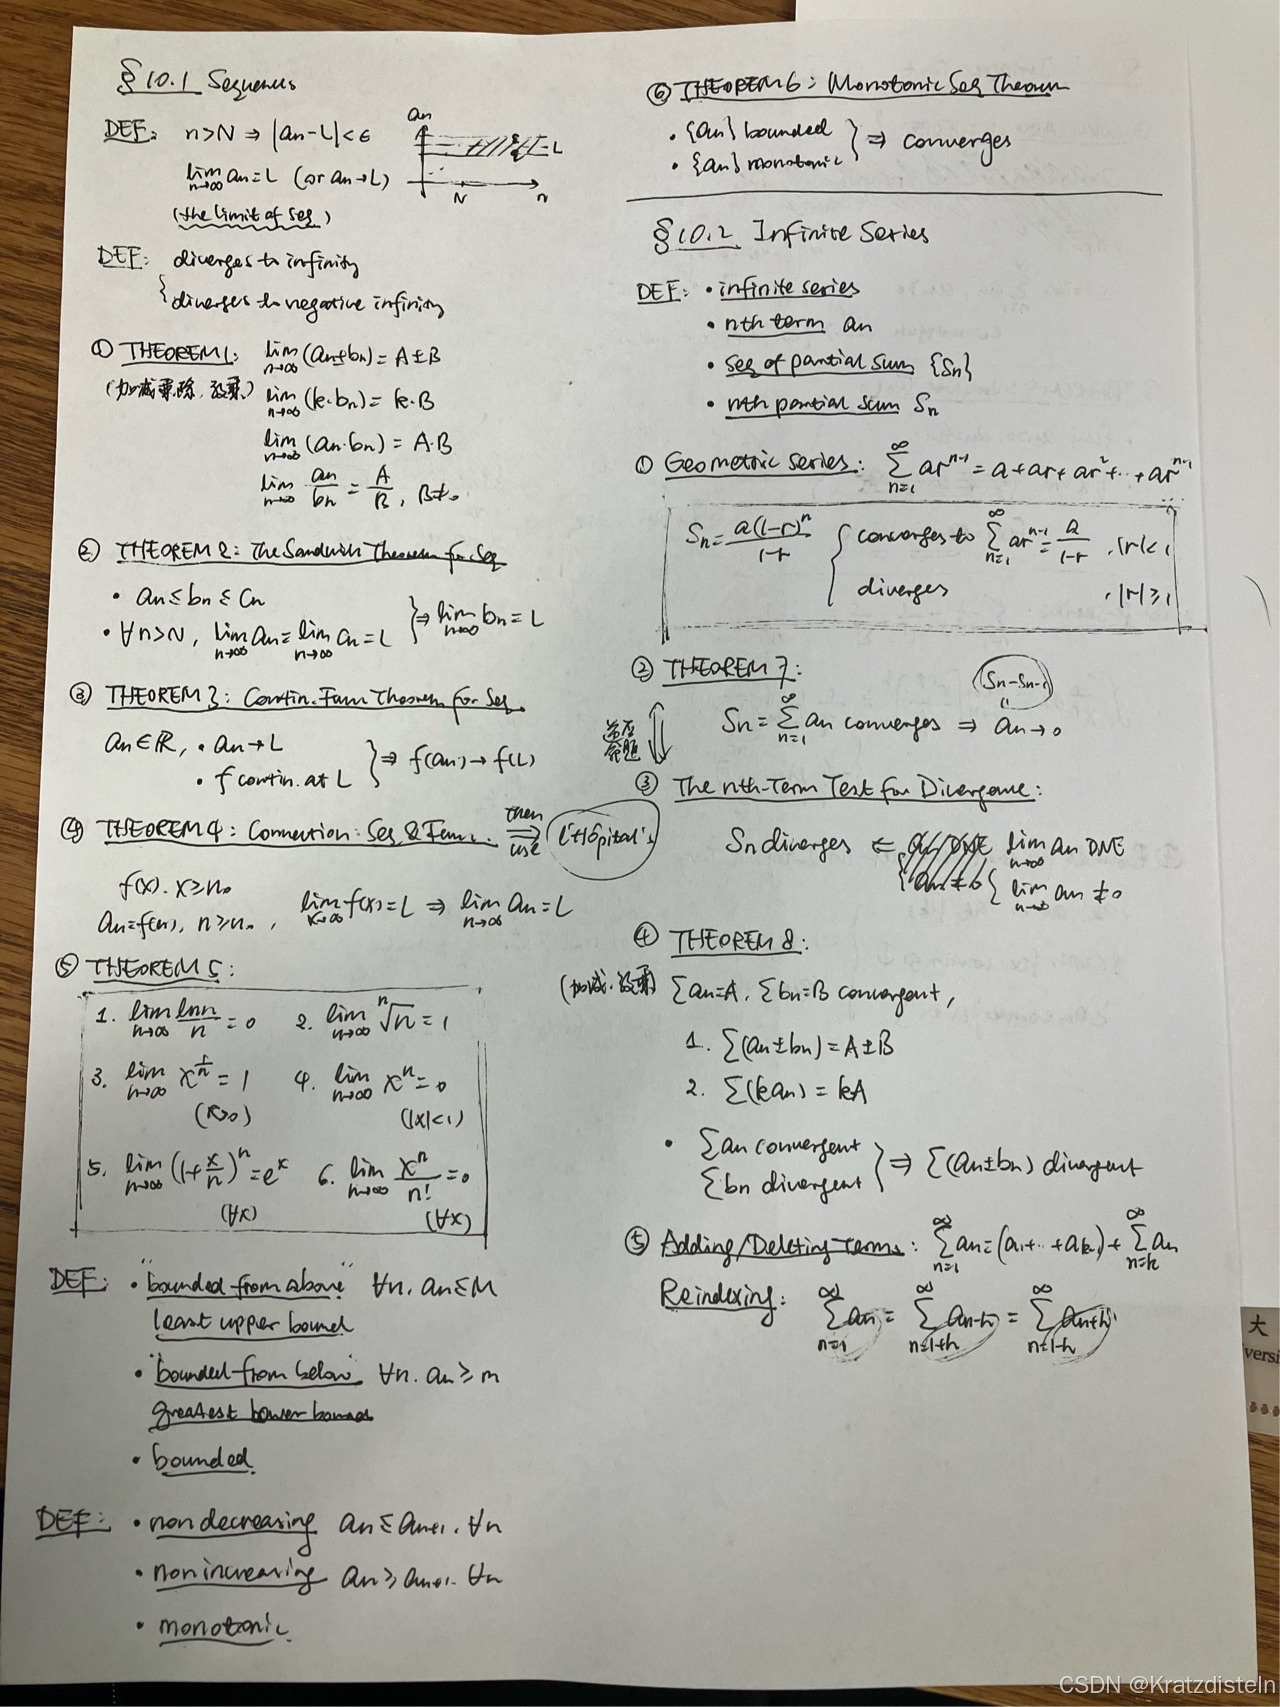 §10.1 Sequences
DEF: n>N ⇒ |an-L|<ϵ
an
L
N
n
lim n→∞ an=L (or an→L)
(the limit of seq)
DEF: diverges to infinity
diverges to negative infinity
① THEOREM 1: lim n→∞ (an±bn)=A±B
(加减乘除,数乘) lim n→∞ (k·bn)=k·B
lim n→∞ (an·bn)=A·B
lim n→∞ an/bn = A/B, B≠0
② THEOREM 2: The Sandwich Theorem for Seq
• an≤bn≤Cn
• ∀n>N, lim n→∞ an=lim n→∞ cn=L } ⇒ lim n→∞ bn=L
③ THEOREM 3: Contin. Func Theorem for Seq.
an∈ℝ, • an→L
• f contin. at L } ⇒ f(an)→f(L)
④ THEOREM 4: Connection: Seq & Func. then ⇒ use L'Hôpital's
f(x), x≥n0
an=f(n), n≥n0, lim x→∞ f(x)=L ⇒ lim n→∞ an=L
⑤ THEOREM 5:
1. lim n→∞ ln n/n=0 2. lim n→∞ ⁿ√n=1
3. lim n→∞ x^(1/n)=1 4. lim n→∞ xⁿ=0
(x>0) (|x|<1)
5. lim n→∞ (1+x/n)ⁿ=eˣ 6. lim n→∞ xⁿ/n!=0
(∀x) (∀x)
DEF: • "bounded from above" ∀n, an≤M
least upper bound
• "bounded from below" ∀n, an≥m
greatest lower bound
• bounded
DEF: • nondecreasing an≤an+1, ∀n
• nonincreasing an≥an+1, ∀n
• monotonic
⑥ THEOREM 6: Monotonic Seq Theorem
• {an} bounded
• {an} monotonic } ⇒ converges
§10.2 Infinite Series
DEF: • infinite series
• nth term an
• seq of partial sum {Sn}
• nth partial sum Sn
① Geometric series: ∞∑n=1 arⁿ⁻¹=a+ar+ar²+···+arⁿ⁻¹
Sn=a(1-r)ⁿ/1-r { converges to ∞∑n=1 arⁿ⁻¹=a/1-r, |r|<1
diverges , |r|≥1
② THEOREM 7:
(Sn-Sn-1)
Sn=∞∑n=1 an converges ⇒ an→0
逆否
命题
③ The nth-Term Test for Divergence:
Sn diverges ⇐ { lim n→∞ an DNE
lim n→∞ an≠0
④ THEOREM 8:
(加减,数乘) ∑an=A, ∑bn=B convergent,
1. ∑(an±bn)=A±B
2. ∑(kan)=kA
• ∑an convergent
∑bn divergent } ⇒ ∑(an±bn) divergent
⑤ Adding/Deleting Terms: ∞∑n=1 an=(a1+···+ak-1)+∞∑n=k an
Reindexing: ∞∑n=1 an=∞∑n=1+h an-h=∞∑n=1-h an+h
大
versi
CSDN @Kratzdisteln